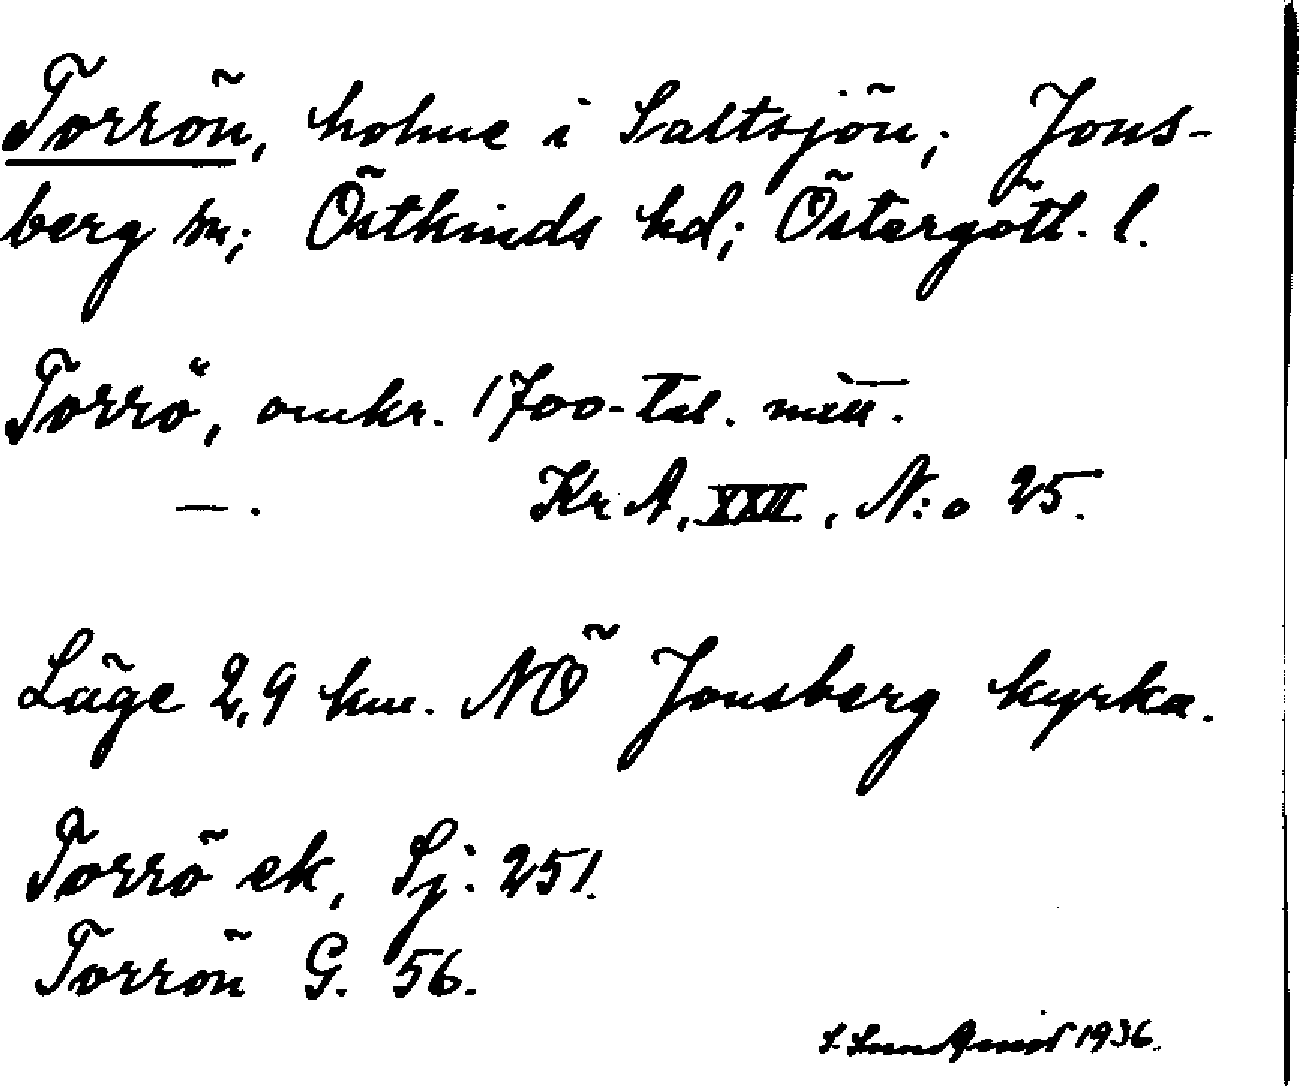 Torrön, holme i Saltsjön; Jons-
berg sn; Östkinds hd; Östergötl. l.
Torrö, omkr. 1700-tal. mitt.
—. Kr A, XXII, N:o 25.
Läge 2,9 km. NÖ Jonsberg kyrka.
Torrö ek, Sj: 251.
Torrön G. 56.
S. Lundqvist 1936.